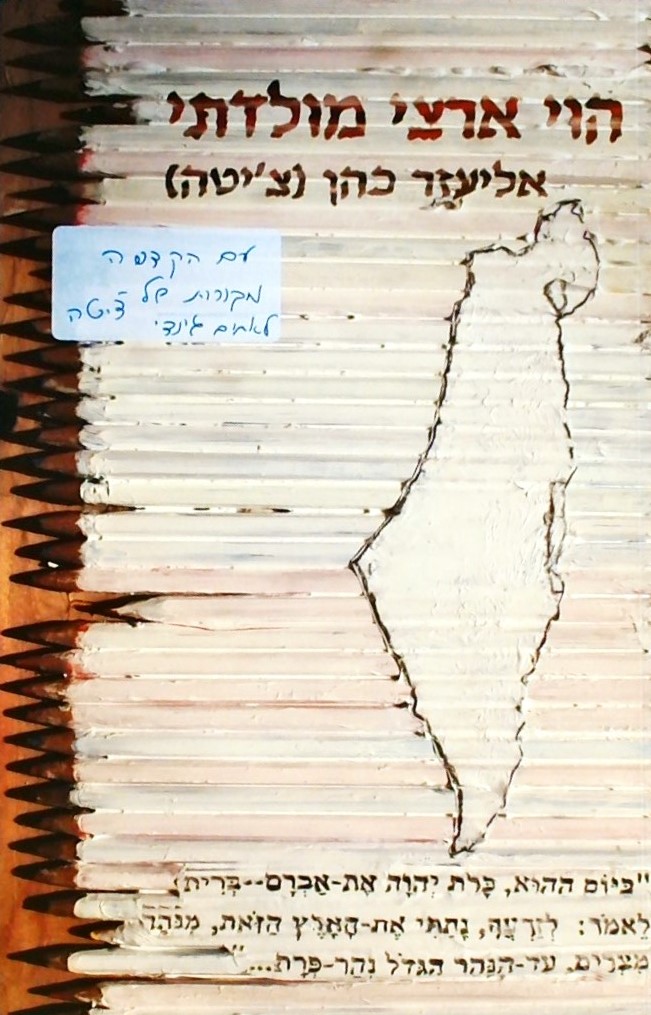 הוי ארצי מולדתי
אליעזר כהן (צ'יטה)
עם הקדשה
מקורות של צ'יטה
לאחים גינדי
"בַּיּוֹם הַהוּא, כָּרַת יְהוָה אֶת-אַבְרָם--בְּרִית
לֵאמֹר: לְזַרְעֲךָ, נָתַתִּי אֶת-הָאָרֶץ הַזֹּאת, מִנְּהַר
מִצְרַיִם, עַד-הַנָּהָר הַגָּדֹל נְהַר-פְּרָת..."